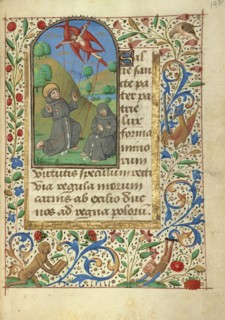 Sal
ue san
cte pa
ter pa
trie
lux
forma
mino
rum
virtutis speculum recti
via regula morum
carnis ab exilio duc
nos ad regna polorum